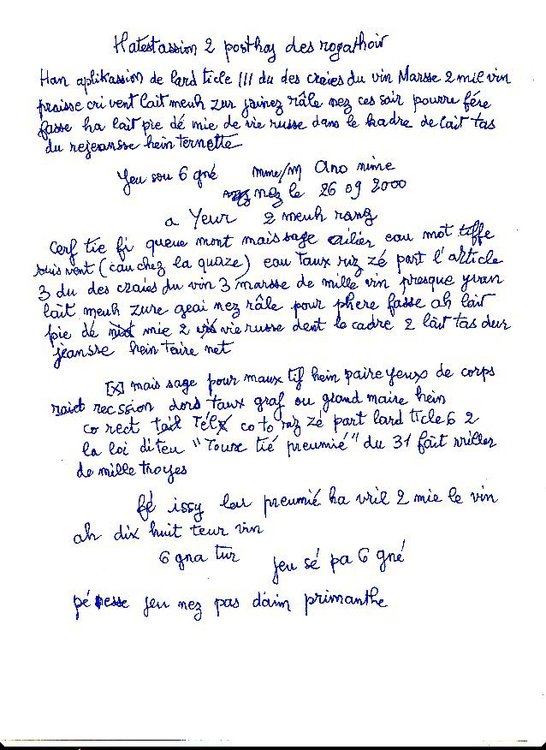 Hatestassion 2 posthaz des rogathoir
Han aplikassion de lard ticle III du des craies du vin Marsse 2 mil vin
praisse cri vent lait meuh zur jainez râle nez ces sair pourre fére
fasse ha lait pie dé mie de vie russe dans le kadre de lait tas
du rejeansse hein ternette
Jeu sou 6 gné mme/m Ano nime
nez le 26 09 2000
a Yeur 2 meuh rang
Cerf tie fi queue mont mais sage ailier eau mot tiffe
suis vent (cau chez la quaze) eau taux riz zé part l'article
3 du des craies du vin 3 marsse de mille vin presque yvan
lait meuh zure geai nez râle pour phere fasse ah lait
pie dé mie 2 vie russe dent le cadre 2 lait tas dur
jeansse hein taire net
[X] mais sage pour maux tif hein paire yeux de corps
raict recssion dors taux graf ou gland maire hein
co rect tail Télx co to riz zé part lard ticle 6 2
la loi diteu "Touxe tié preumié" du 31 fait vriller
de mille troyes
Fé issy leu preumié ha vril 2 mie le vin
ah dix huit teur vin
6 gna tur jeu sé pa 6 gné
pé esse jeu nez pas d'aim primanthe